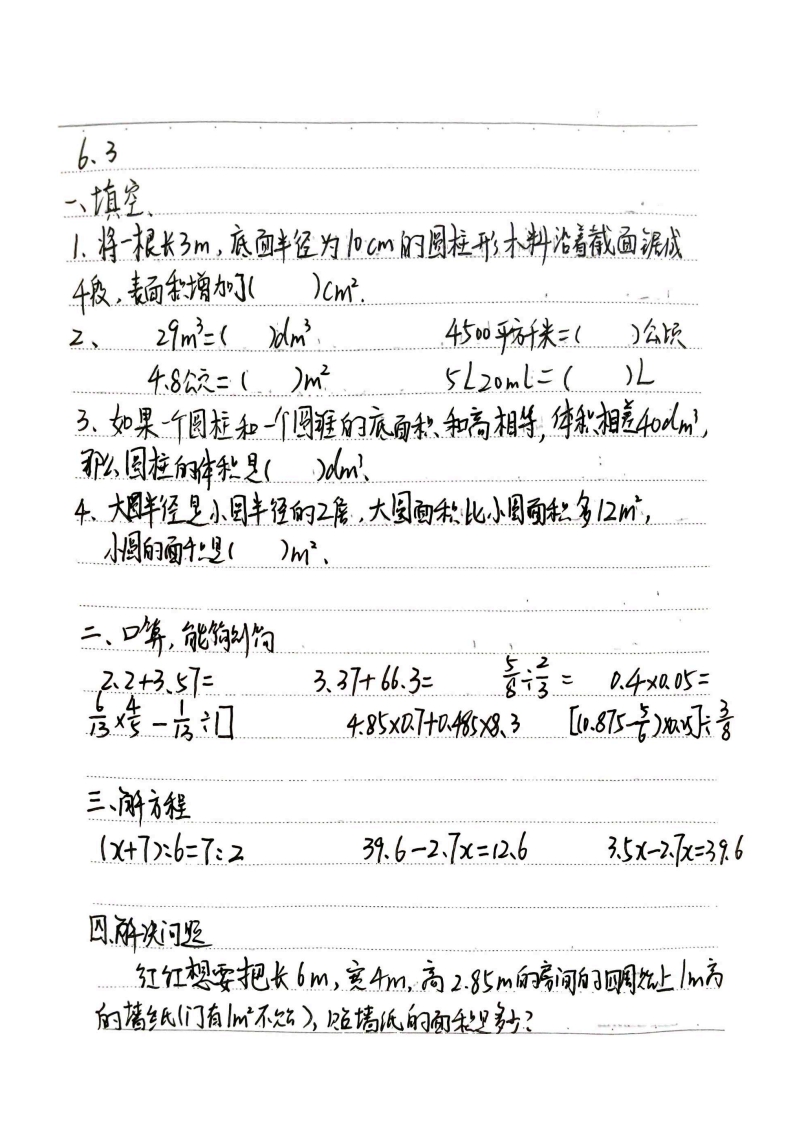 6、3
一、填空、
1、将一根长3m,底面半径为10cm的圆柱形木料沿着截面锯成
4段,表面积增加了(  )cm².
2、 29m³=(  )dm³ 4500平方千米=(  )公顷
4.8公亩=(  )m² 5L20mL=(  )L
3、如果一个圆柱和一个圆锥的底面积、和高相等,体积相差40dm³,
那么圆柱的体积是(  )dm³、
4、大圆半径是小圆半径的2倍,大圆面积比小圆面积多12m²,
小圆的面积是(  )m²、
二、口算,能简则简
2.2+3.57= 3.37+66.3= 5/8÷2/3= 0.4×0.05=
6/13×4/5-1/13÷1 4.85×0.7+0.485×8.3 [(0.875-5/6)×]÷3/8
三、解方程
(x+7):6=7:2 39.6-2.7x=12.6 3.5x-2.7x=39.6
四、解决问题
红红想要把长6m,宽4m,高2.85m的房间的四周贴上1m高
的墙纸(门有1m²不贴),贴墙纸的面积是多少?